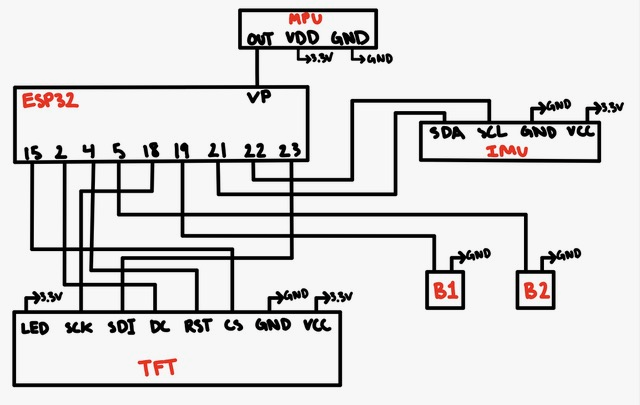 MPU
OUT VDD GND
3.3V GND
ESP32
VP
15 2 4 5 18 19 21 22 23
GND 3.3V
SDA SCL GND VCC
IMU
GND GND
B1 B2
3.3V GND 3.3V
LED SCK SDI DC RST CS GND VCC
TFT